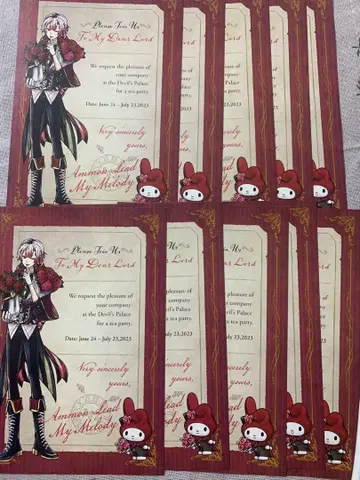 Please Join Us
To My Dear Lord
We request the pleasure of
your company
at the Devil's Palace
for a tea party.
Date: June 24 - July 23,2023
Very sincerely
yours,
Ammon Lead
My Melody
Please Join Us
To My Dear Lord
We request the pleasure of
your company
at the Devil's Palace
for a tea party.
Date: June 24 - July 23,2023
Very sincerely
yours,
Ammon Lead
My Melody